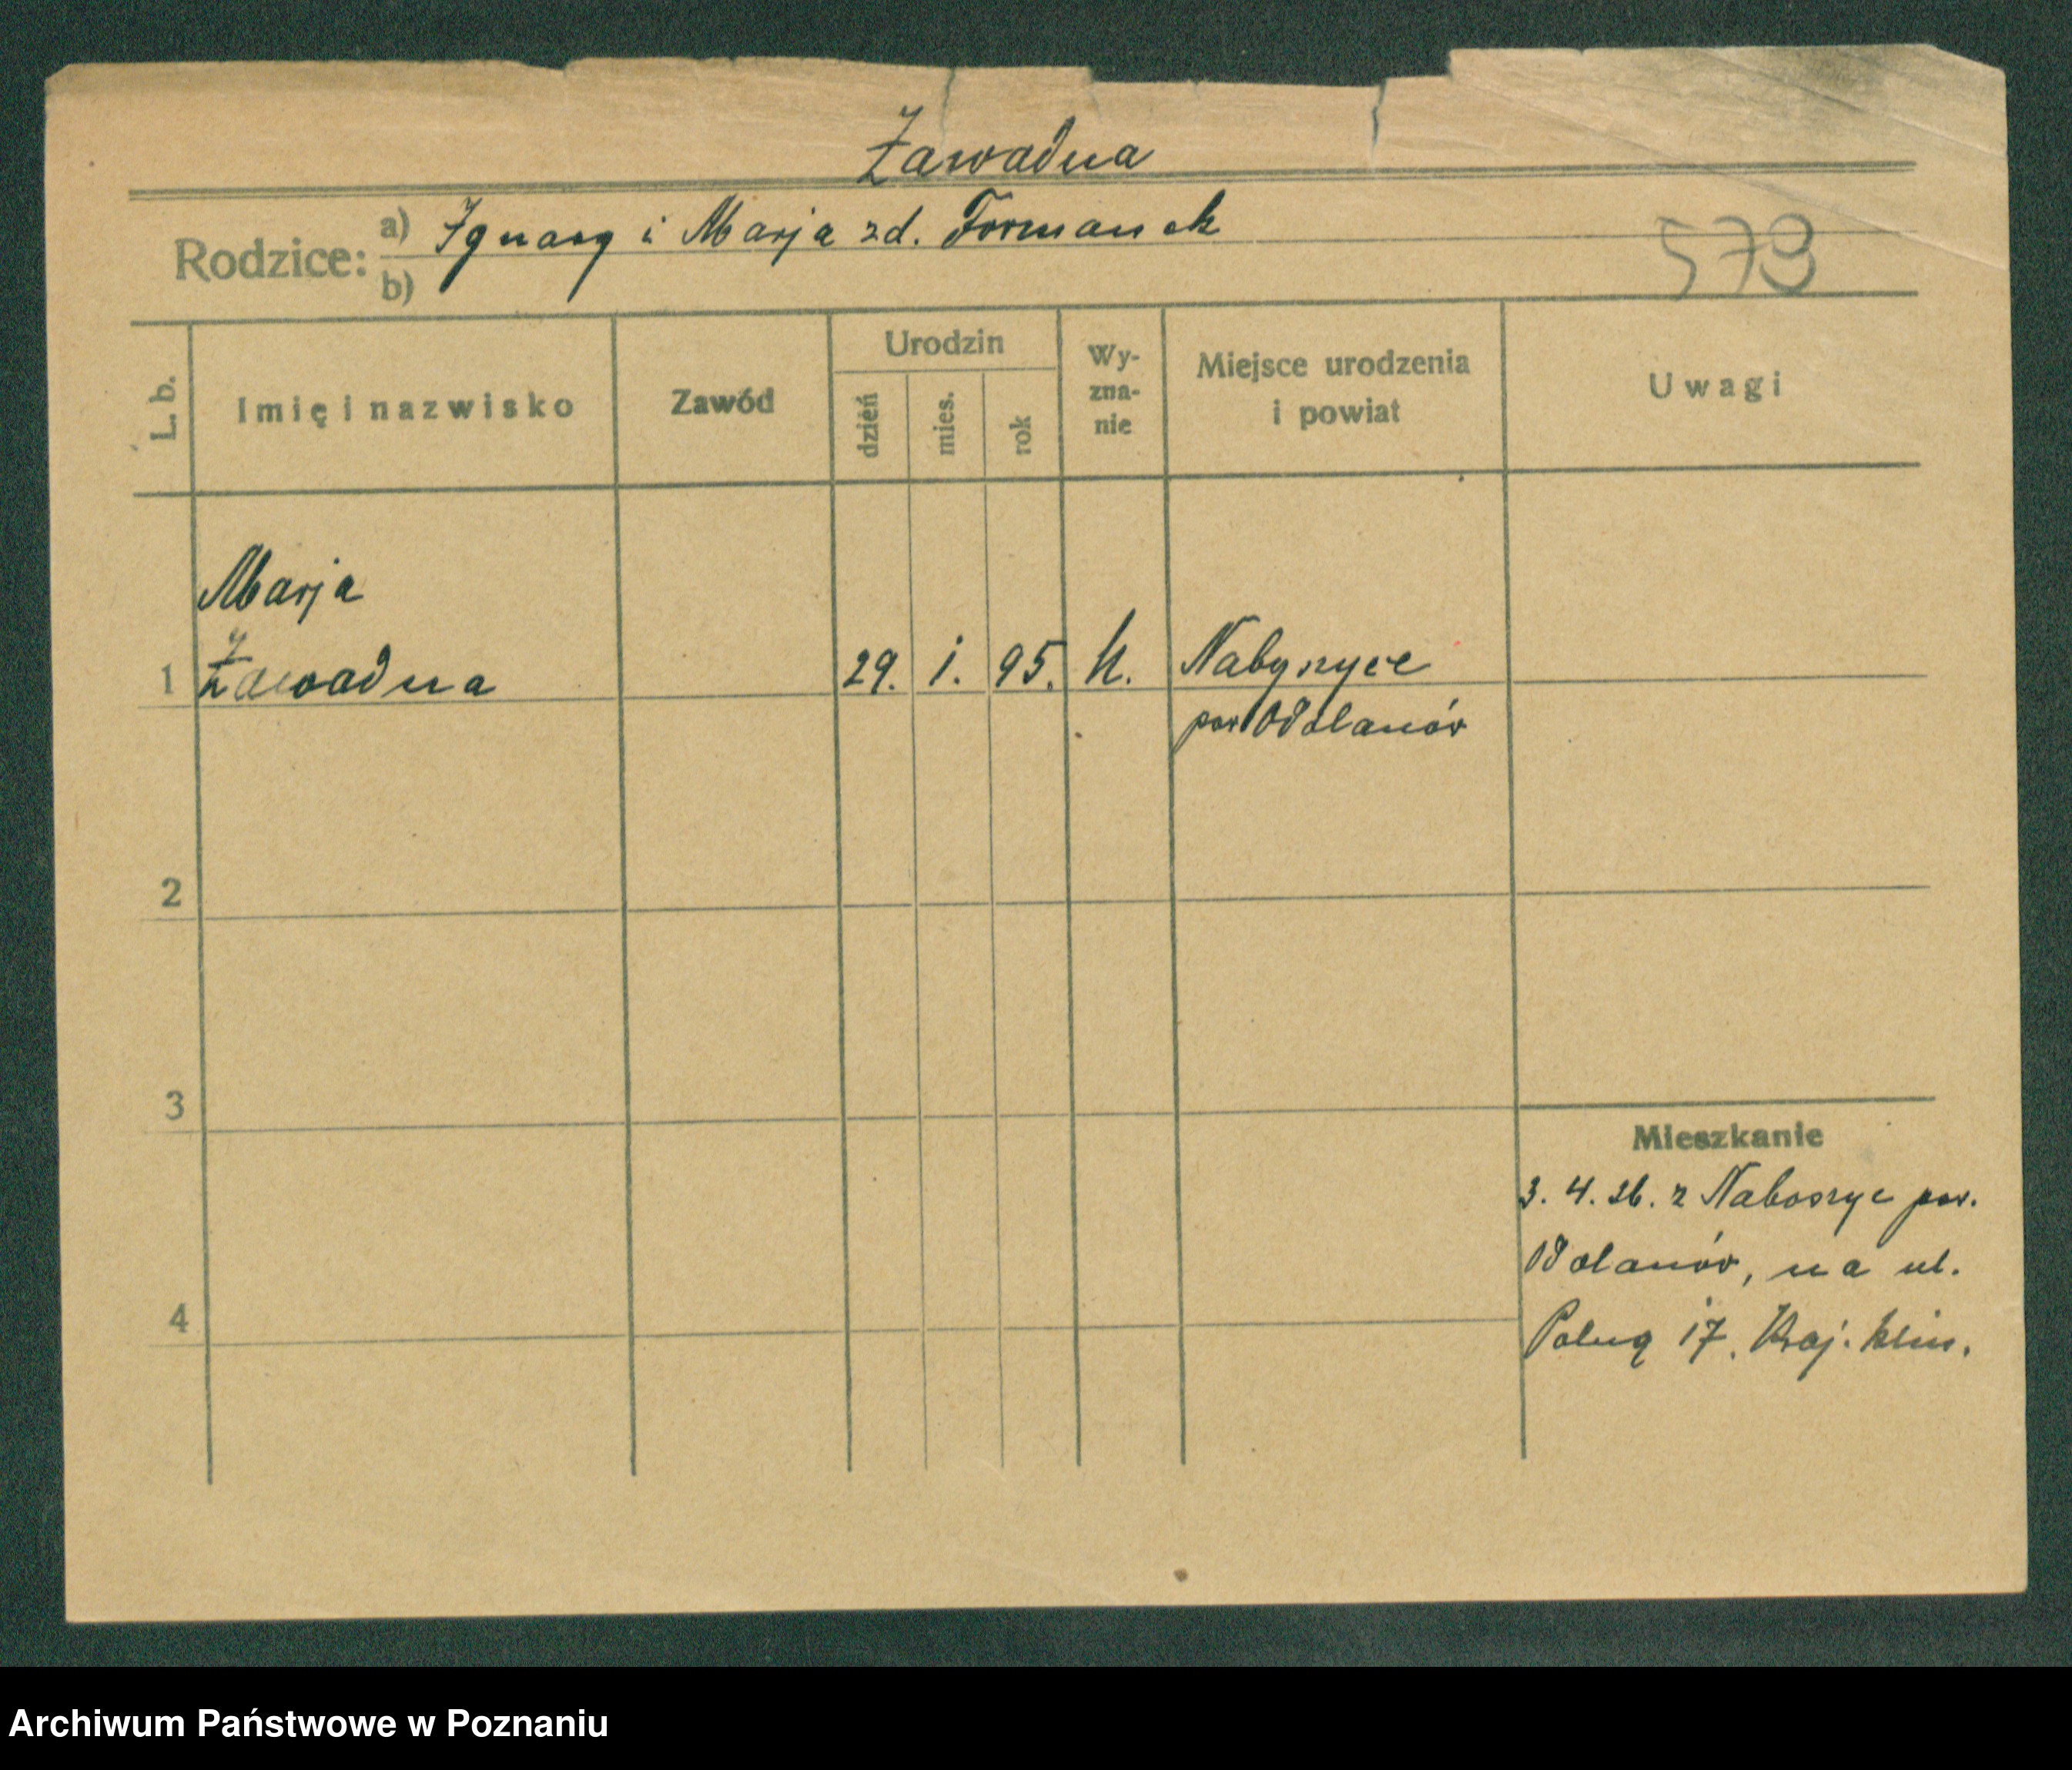 Zawadna
Rodzice: a) Ignacy i Marja zd. Formanek
b)
573
L. b.
Imię i nazwisko
Zawód
Urodzin
dzień
mies.
rok
Wy-
zna-
nie
Miejsce urodzenia
i powiat
Uwagi
Marja
1 Zawadna 29. 1. 95. k. Nabyszyce
pow Odolanów
2
3
4
Mieszkanie
3. 4. 26. z Naboszyc pow.
Odolanów, na ul.
Polną 17.
Archiwum Państwowe w Poznaniu